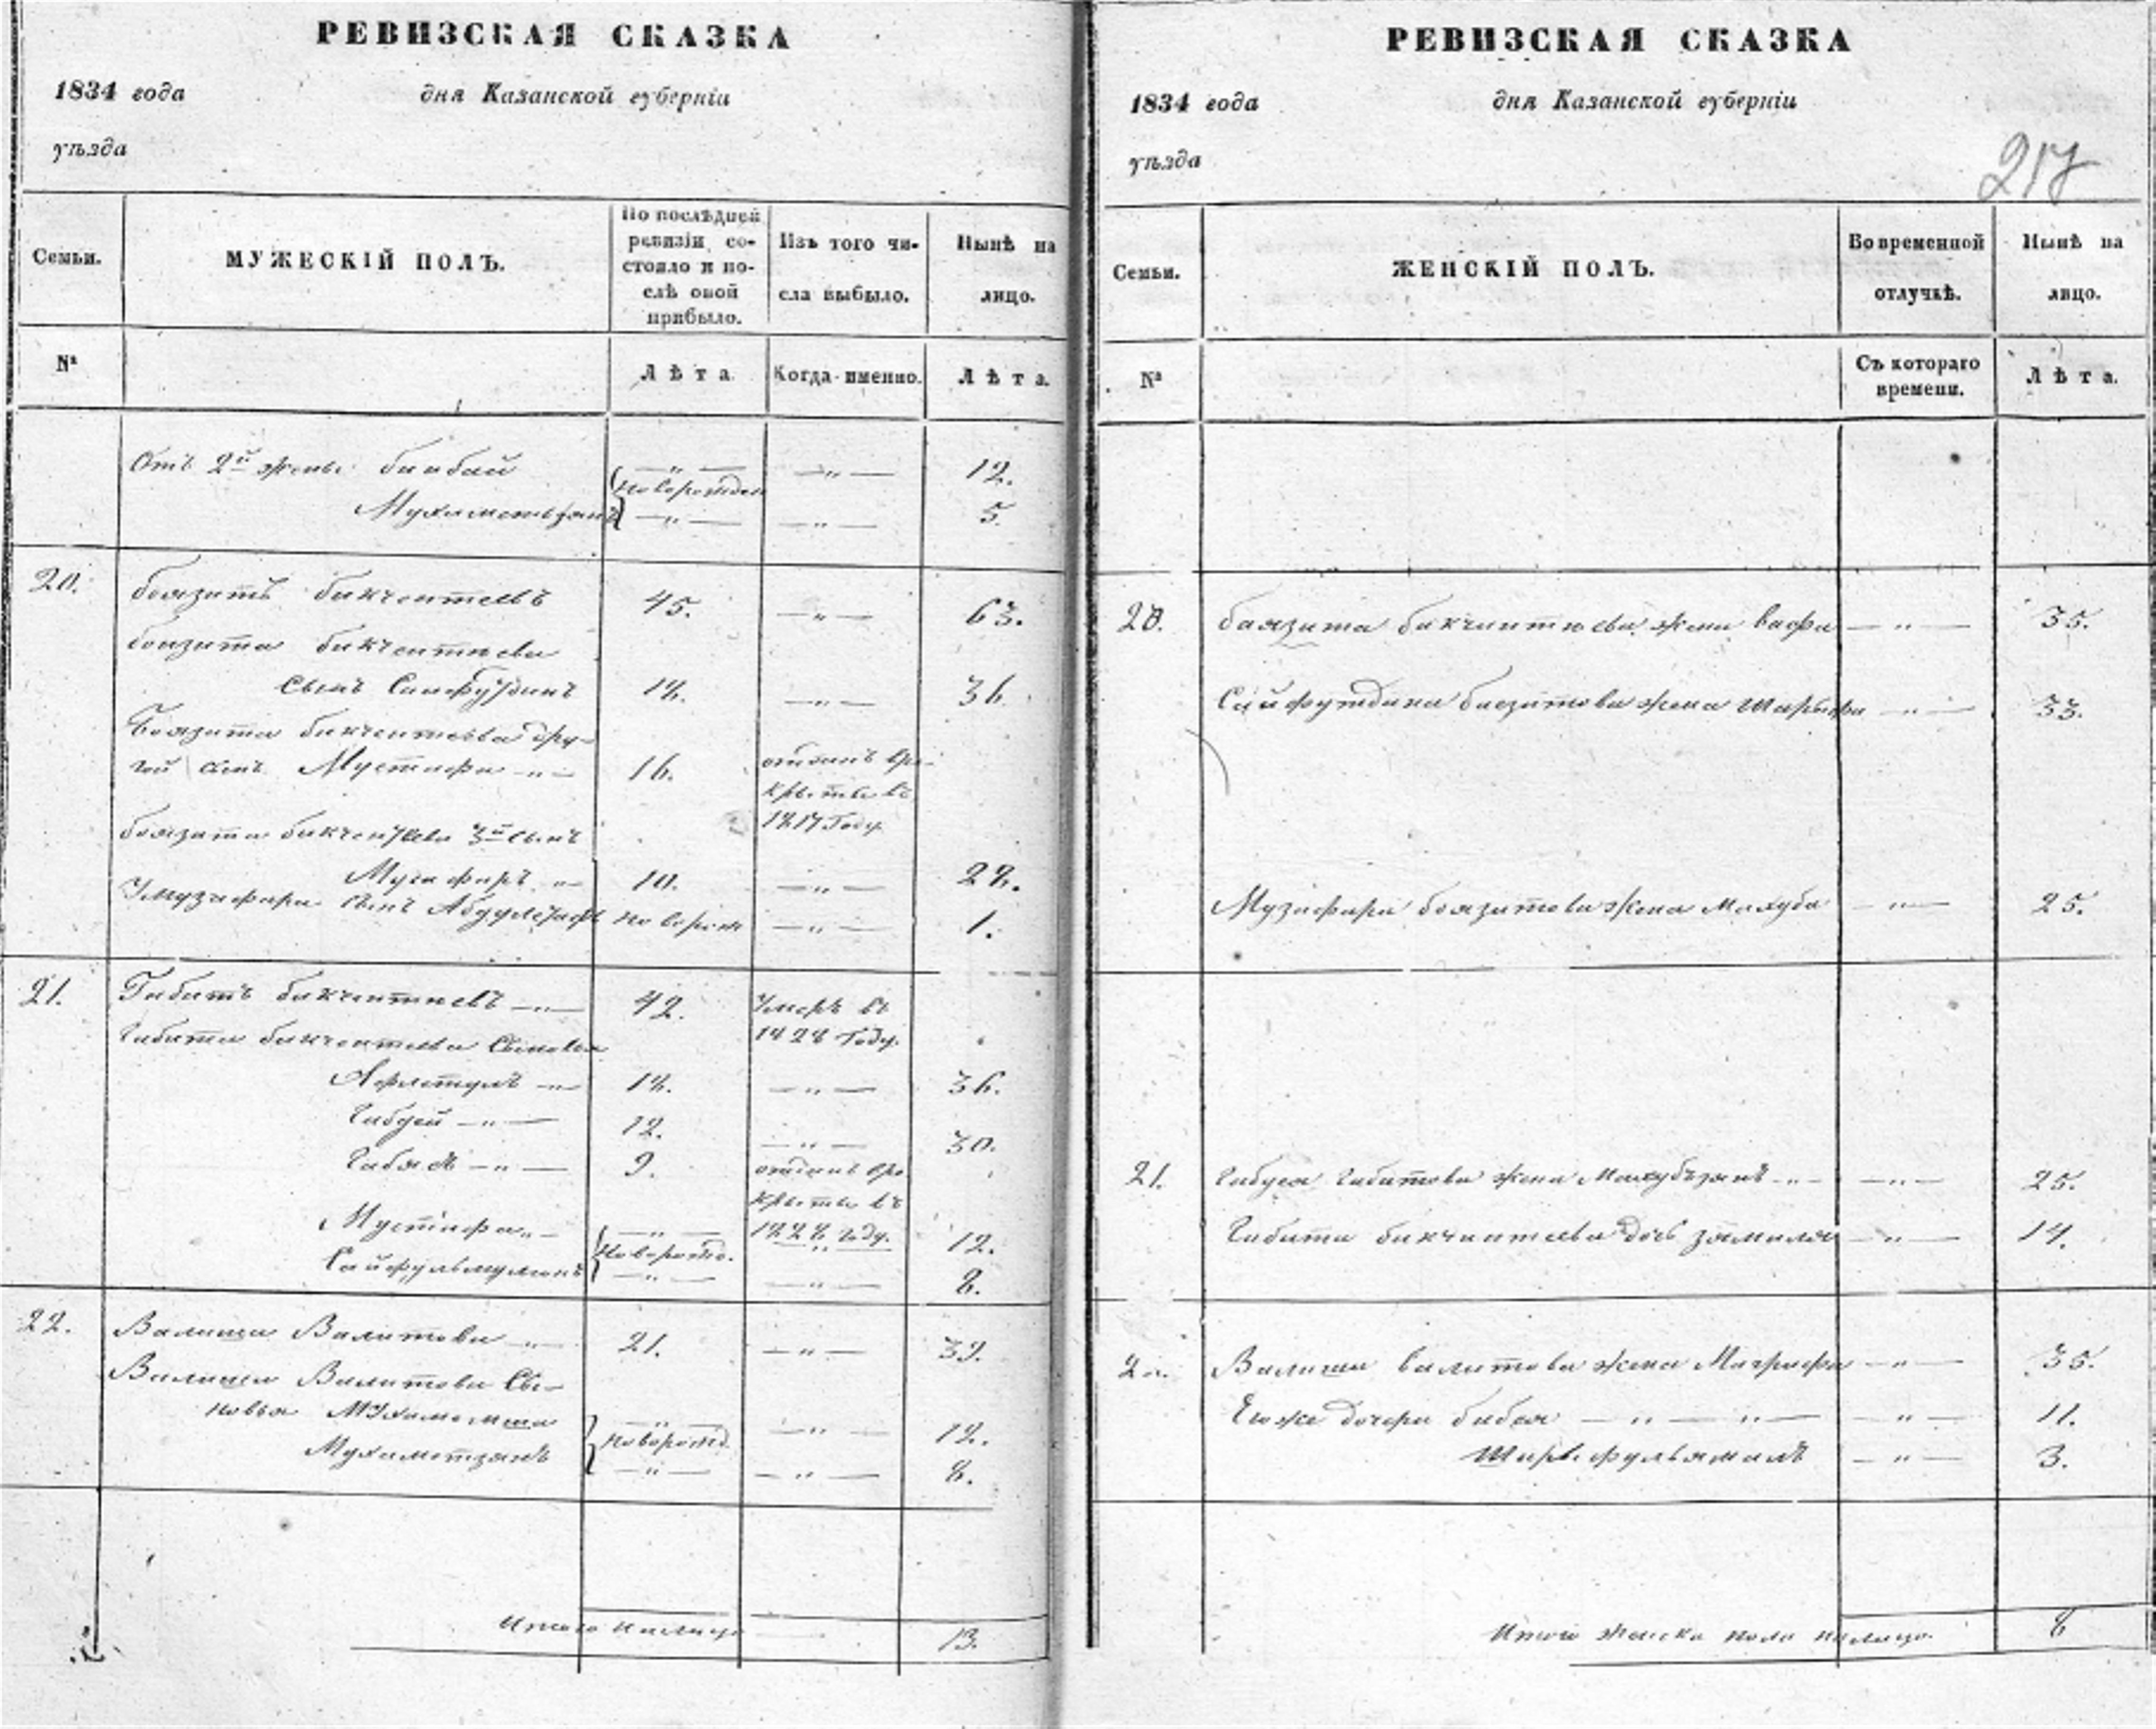 РЕВИЗСКАЯ СКАЗКА
1834 года дня Казанской губерніи
уѣзда
Семьи.
МУЖЕСКІЙ ПОЛЪ.
По послѣдней ревизіи состояло и послѣ оной прибыло.
Изъ того числа выбыло.
Нынѣ на лицо.
№
Лѣта
Когда именно.
Лѣта.
Отъ 2й жены бикбай —„— —„— 12.
новорожден
—„— —„— 5
20. боязитъ бикчентаевъ 45. —„— 63.
боязита бикчентаева
сынъ 18. —„— 36
Боязита бикчентаева дру-
гой сынъ Мустафа —„— 16. отданъ в ре-
круты въ
1817 году
боязита бикчентаева 3й сынъ
10. —„— 28.
сынъ новорож —„— 1.
21. Габитъ бикчентаевъ —„— 42. Умеръ въ
1828 году.
Габита бикчентаева сыновья
18. —„— 36.
12. —„— 30.
9. отданъ в ре
круты въ
1828 году.
Мустафа „— —„— —„— 12.
новорожд.
Сайфульмулюкъ —„— —„— 8.
22. Валиша Валитова —„— 21. —„— 39.
Валиши Валитова Сы-
новья Мухаметша —„— —„— 12.
новорожд.
Мухаметзянъ —„— —„— 8.
Итого налицо 13.
РЕВИЗСКАЯ СКАЗКА
1834 года дня Казанской губерніи
уѣзда
217
Семьи.
ЖЕНСКІЙ ПОЛЪ.
Во временной отлучкѣ.
Нынѣ на лицо.
№
Съ котораго времени.
Лѣта.
20. баязита бикчентаева жена вафа —„— 35.
Сайфутдина баезитова жена Шарифа —„— 33.
Музафара боязитова жена Махуба —„— 25.
21. Габитова жена —„— —„— 25.
Габита бикчентаева дочь зямиля —„— 14.
22. Валиши валитова жена —„— 35.
Егоже дочери бибея —„— „— „— 11.
—„— 3.
Итого женска пола налицо. 8